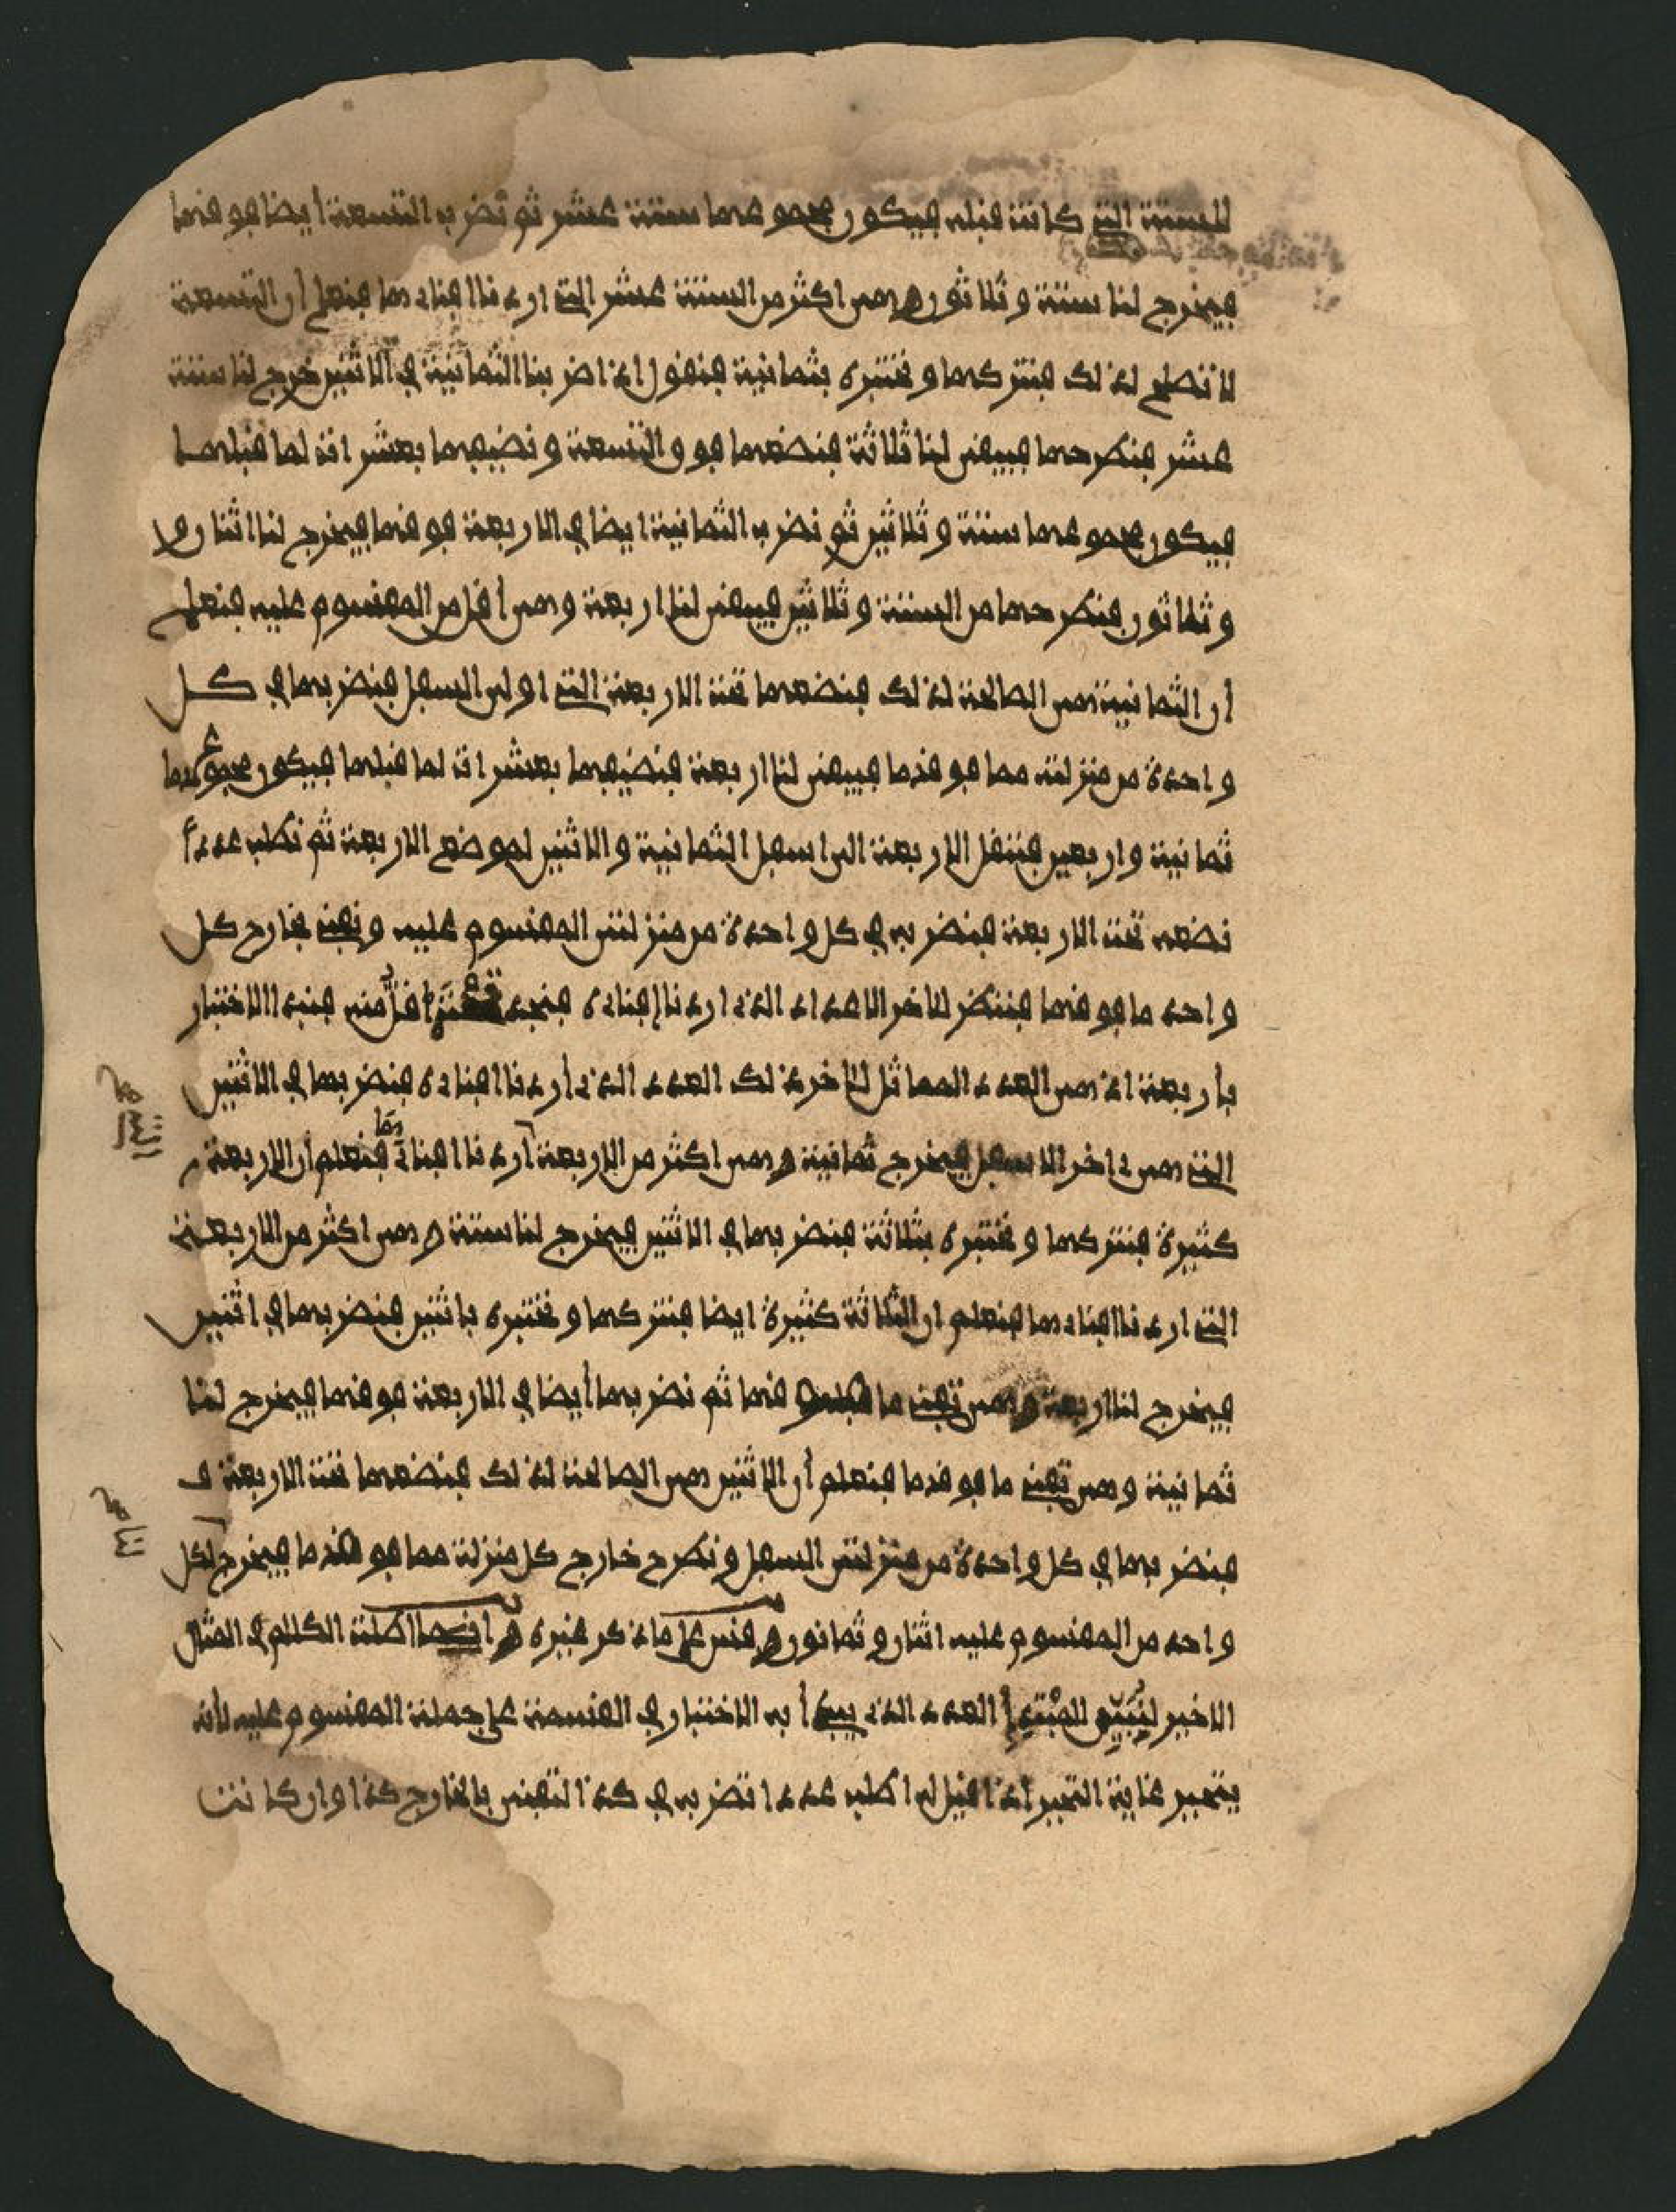 للستة التي كانت قبله فيكون مجموعهما ستة عشر ثم نضرب التسعة أيضا فوقهما
فيخرج لنا ستة وثلاثون وهي اكثر من الستة عشر التي اردنا افنادها فنعلم أن التسعة
لا تصلح لذلك فنتركها ونختبره بثمانية فنقول اذا ضربنا الثمانية في الاثنين خرج لنا ستة
عشر فنطرحها فيبقى لنا ثلاثة فنضعها فوق التسعة ونضيفها بعشرات لما قبلها
فيكون مجموعهما ستة وثلاثين ثم نضرب الثمانية ايضا في الاربعة فوقهما فيخرج لنا اثنان و
وثلاثون فنطرحها من الستة وثلاثين فيبقى لنا اربعة وهي أقل من المقسوم عليه فنعلم
أن الثمانية هي الصالحة لذلك فنضعها تحت الاربعة التي اولى السفل فنضربها في كل
واحدة من منزلته مما فوقهما فيبقى لنا اربعة فنضيفها بعشرات لما قبلها فيكون مجموعهما
ثمانية واربعين فننقل الاربعة الى اسفل الثمانية والاثنين لموضع الاربعة ثم نطلب عددا
نضعه تحت الاربعة فنضربه في كل واحدة من منزلتي المقسوم عليه ونفني بخارج كل
واحد ما فوقهما فننظر لاخر الاعداد الذي اردنا إفناده فنجده أقل منه فنبدا الاختبار
بأربعة اذ هي العدد المماثل لآخر ذلك العدد الذي أردنا افناده فنضربها في الاثنين
التي هي اخر الاسفل فيخرج ثمانية وهي اكثر من الاربعة أردنا افنادها فنعلم أن الاربعة
كثيرة فنتركها ونختبره بثلاثة فنضربها في الاثنين فيخرج لنا ستة وهي اكثر من الاربعة
التي اردنا افنادها فنعلم ان الثلاثة كثيرة ايضا فنتركها ونختبره باثنين فنضربها في اثنين
فيخرج لنا اربعة وهي تفني ما فوقهما ثم نضربها أيضا في الاربعة فوقهما فيخرج لنا
ثمانية وهي تفني ما فوقهما فنعلم أن الاثنين هي الصالحة لذلك فنضعها تحت الاربعة
فنضربها في كل واحدة من منزلتي السفل ونطرح خارج كل منزلة مما فوقهما فيخرج لكل
واحد من المقسوم عليه اثنان وثمانون وقس على ما ذكر غيره وانما اطلت الكلام في المثال
الاخير ليتبين للمبتدإ العدد الذي يبدأ به الاختبار في القسمة على جملة المقسوم عليه لأنه
يتحير غاية التحير اذا قيل له اطلب عددا تضربه في كذا لتفني بالخارج كذا وان كانت